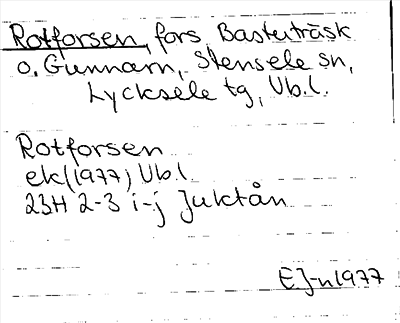 Rotforsen, fors, Basterträsk
o. Gunnarn, Stensele sn,
Lycksele tg, Vb.l.
Rotforsen
ek(1977) Vb.l
23H 2-3 i-j Juktån
EJ-n1977